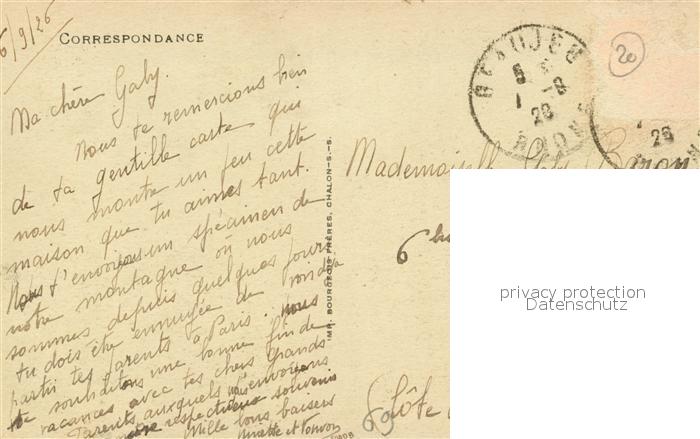 6/9/26
CORRESPONDANCE
Ma chère Gaby.
Nous te remercions bien
de ta gentille carte qui
nous montre un peu cette
maison que tu aimes tant.
Nous t'envoyons un spécimen de
notre montagne où nous
sommes depuis quelques jours
tu dois être ennuyée de voir
partir tes parents à Paris. nous
te souhaitons une bonne fin de
vacances avec tes chers grands
Parents auxquels nous envoyons
notre respectueux souvenir
Mille bons baisers
IMP. BOURGEOIS FRÈRES, CHALON-S.-S.
BEAUJEU
RHONE
20
26
Mademoiselle Gaby
6 bis
69 Côte
privacy protection
Datenschutz